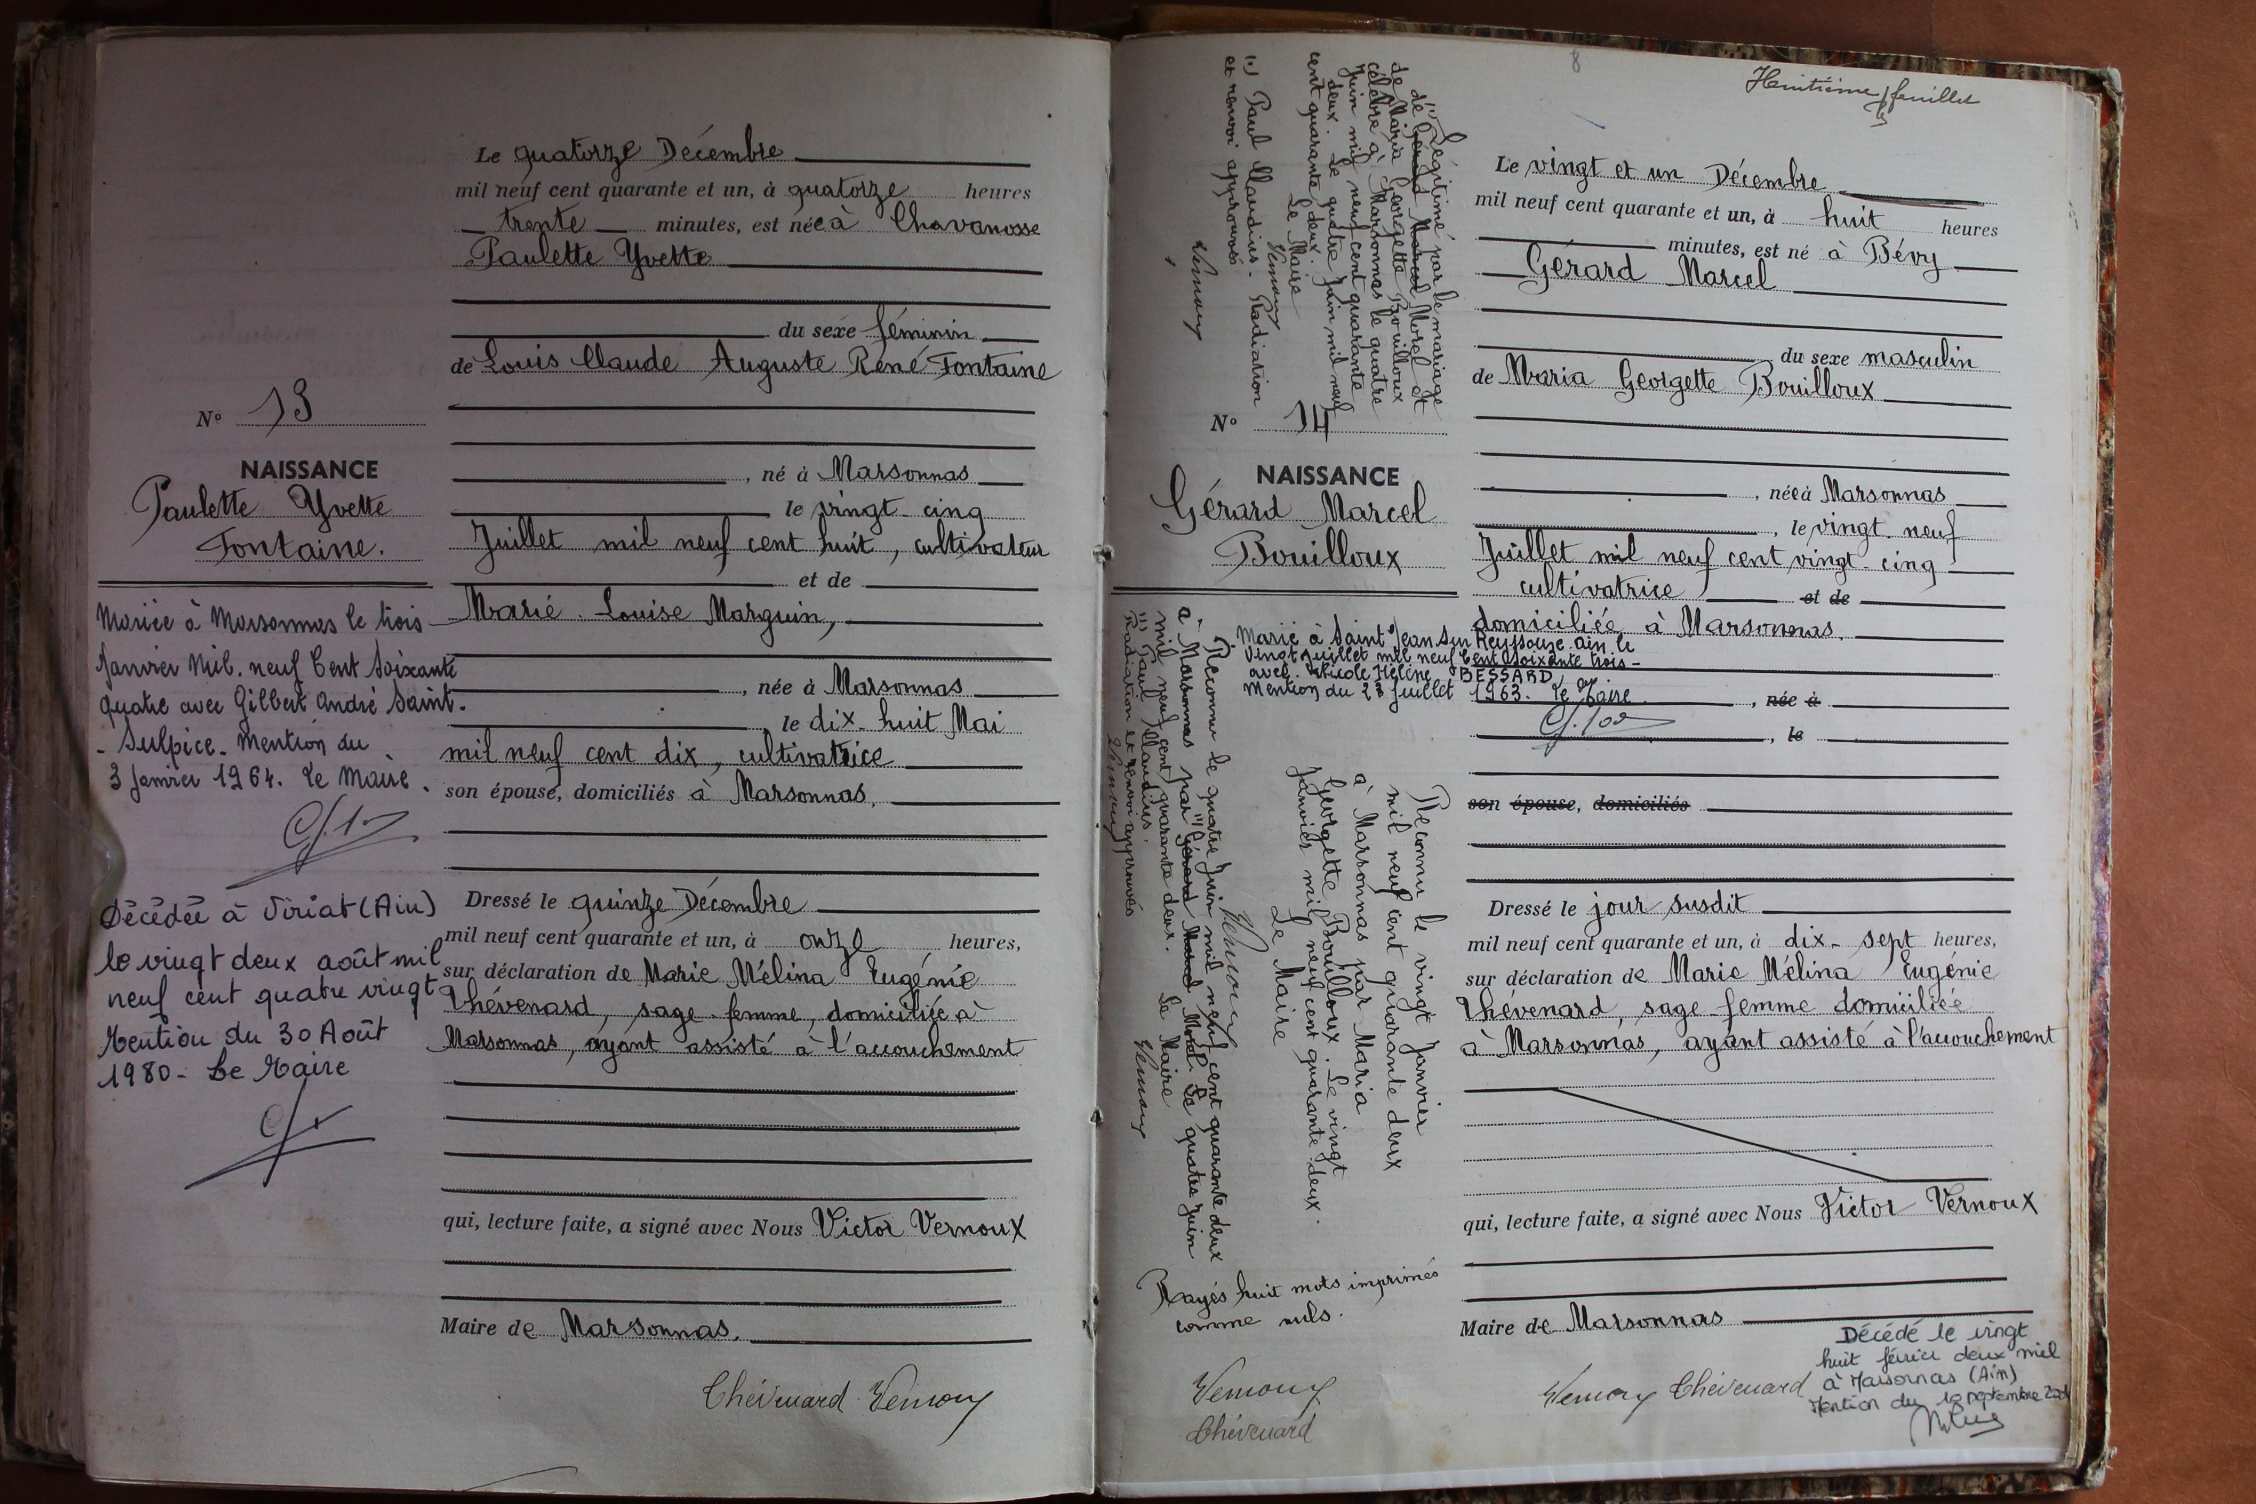 Le quatorze Décembre
mil neuf cent quarante et un, à quatorze heures
trente minutes, est née à Chavanosse
Paulette Yvette
du sexe féminin
de Louis Claude Auguste René Fontaine
N° 13
NAISSANCE
Paulette Yvette
Fontaine.
, né à Marsonnas
le vingt-cinq
Juillet mil neuf cent huit, cultivateur
et de
Marie-Louise Marguin,
, née à Marsonnas
le dix-huit Mai
mil neuf cent dix, cultivatrice
son épouse, domiciliés à Marsonnas,
Mariée à Marsonnas le trois
Janvier mil neuf Cent Soixante
quatre avec Gilbert André Saint-
-Sulpice. Mention du
3 Janvier 1964. Le Maire.
Décédée à Viriat (Ain)
le vingt deux août mil
neuf cent quatre vingt
Mention du 30 Août
1980 - Le Maire
Dressé le quinze Décembre
mil neuf cent quarante et un, à onze heures,
sur déclaration de Marie Mélina Eugénie
Thévenard, sage-femme, domiciliée à
Marsonnas, ayant assisté à l'accouchement
qui, lecture faite, a signé avec Nous Victor Vernoux
Maire de Marsonnas.
Thévenard Vernoux
8
Huitième feuillet
(1) Légitimé par le mariage
de Gérard Marcel Morel et
de Maria Georgette Bouilloux
célébré à Marsonnas le quatre
Juin mil neuf cent quarante
deux. Le quatre Juin mil neuf
cent quarante deux.
Le Maire
Vernoux
(1) Paul Claudius - Radiation
et renvoi approuvés
Vernoux
Le vingt et un Décembre
mil neuf cent quarante et un, à huit heures
minutes, est né à Bévy
Gérard Marcel
du sexe masculin
de Maria Georgette Bouilloux
N° 14
NAISSANCE
Gérard Marcel
Bouilloux
, née à Marsonnas
, le vingt-neuf
Juillet mil neuf cent vingt-cinq
cultivatrice et de
domiciliée à Marsonnas.
, née à
, le
son épouse, domiciliés
Marié à Saint Jean sur Reyssouze Ain le
vingt Juillet mil neuf Cent soixante trois -
avec Nicole Hélène BESSARD
Mention du 23 Juillet 1963. Le Maire
Reconnu le vingt Janvier
mil neuf cent quarante deux
à Marsonnas par Maria
Georgette Bouilloux. Le vingt
Janvier mil neuf cent quarante deux.
Le Maire
Vernoux
Reconnu le quatre Juin mil neuf cent quarante deux
à Marsonnas par (1) Gérard Marcel Morel. Le quatre Juin
mil neuf cent quarante deux. Le Maire
Vernoux
(1) Paul Claudius.
Radiation et renvoi approuvés
Vernoux
Rayés huit mots imprimés
comme nuls.
Vernoux
Thévenard
Dressé le jour susdit
mil neuf cent quarante et un, à dix-sept heures,
sur déclaration de Marie Mélina Eugénie
Thévenard, sage-femme domiciliée
à Marsonnas, ayant assisté à l'accouchement
qui, lecture faite, a signé avec Nous Victor Vernoux
Maire de Marsonnas
Vernoux Thévenard
Décédé le vingt
huit février deux mil
à Marsonnas (Ain)
Mention du 10 septembre